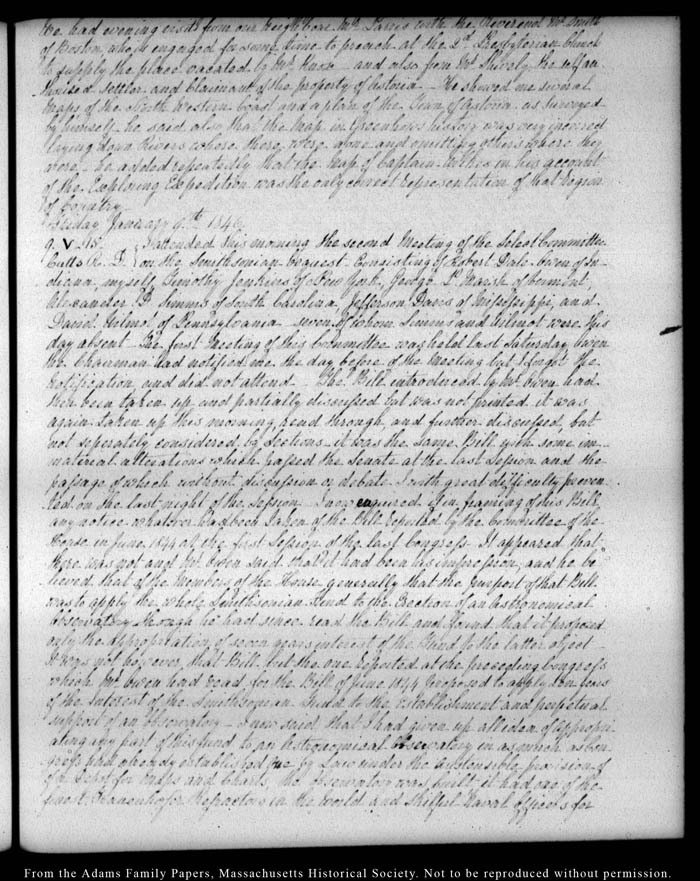 We had evening visits from our neighbour Mr Jarvis with the Reverend Mr Smith
of Boston, who is engaged for some time to preach at the 2d. Presbyterian Church
to supply the place vacated by Mr Knox — and also from Mr Shively the
settler and Claimant of the property of Astoria — He shewed me several
maps of the North Western Coast and a plan of the Town of Astoria as surveyed
by himself — he said also that the Map in Greenhow's history was very incorrect
laying down Rivers where there were none and omitting others where they
were. he added repeatedly that the Map of Captain Wilkes in his account
of the Exploring Expedition was the only correct representation of that Region
of Country.
Friday January 9th. 1846
9. V. 15. I attended this morning the second Meeting of the Select Committee
Cutts R. D. on the Smithsonian bequest. Consisting of Robert Dale Owen of In-
diana, myself, Timothy Jenkins of New York, George P. Marsh of Vermont,
Alexander D. Simms of South Carolina Jefferson Davis of Mississippi, and
David Wilmot of Pennsylvania — seven of whom Simms and Wilmot were this
day absent — The first Meeting of this Committee was held last Saturday Owen
the Chairman had notified me the day before of the Meeting but I forgot the
notification and did not attend — The Bill introduced by Mr Owen had
then been taken up and partially discussed but was not printed it was
again taken up this morning, read through, and further discussed, but
not seperately considered by Sections — it was the same Bill with some im-
material alterations which passed the Senate at the last Session and the
passage of which without discussion or debate I with great difficulty preven-
ted on the last night of the Session. I now enquired if in framing of this Bill
any notice whatever had been taken of the Bill reported by the Committee of the
House in June 1844 at the first Session of the last Congress It appeared that
there was not and Mr Owen said that it had been his impression, and he be-
lieved that of the Members of the House generally that the purport of that Bill
was to apply the whole Smithsonian Fund to the Erection of an Astronomical
Observatory though he had since read the Bill and found that it proposed
only the appropriation of seven years interest of the Fund to the latter object
It was not however, that Bill but the one reported at the preceding Congress
which Mr Owen had read for the Bill of June 1844 proposed to apply ten years
of the Interest of the Smithsonian Fund to the establishment and perpetual
support of an observatory — I now said that I had given up all idea of appropri-
ating any part of this fund to an Astronomical Observatory in as much as Con-
gress had already established one by Law under the ostensible provision of
of a Depot for maps and Charts, the Observatory was built it had one of the
finest Frauenhofer Refractors in the world and skilful Naval officers for
From the Adams Family Papers, Massachusetts Historical Society. Not to be reproduced without permission.